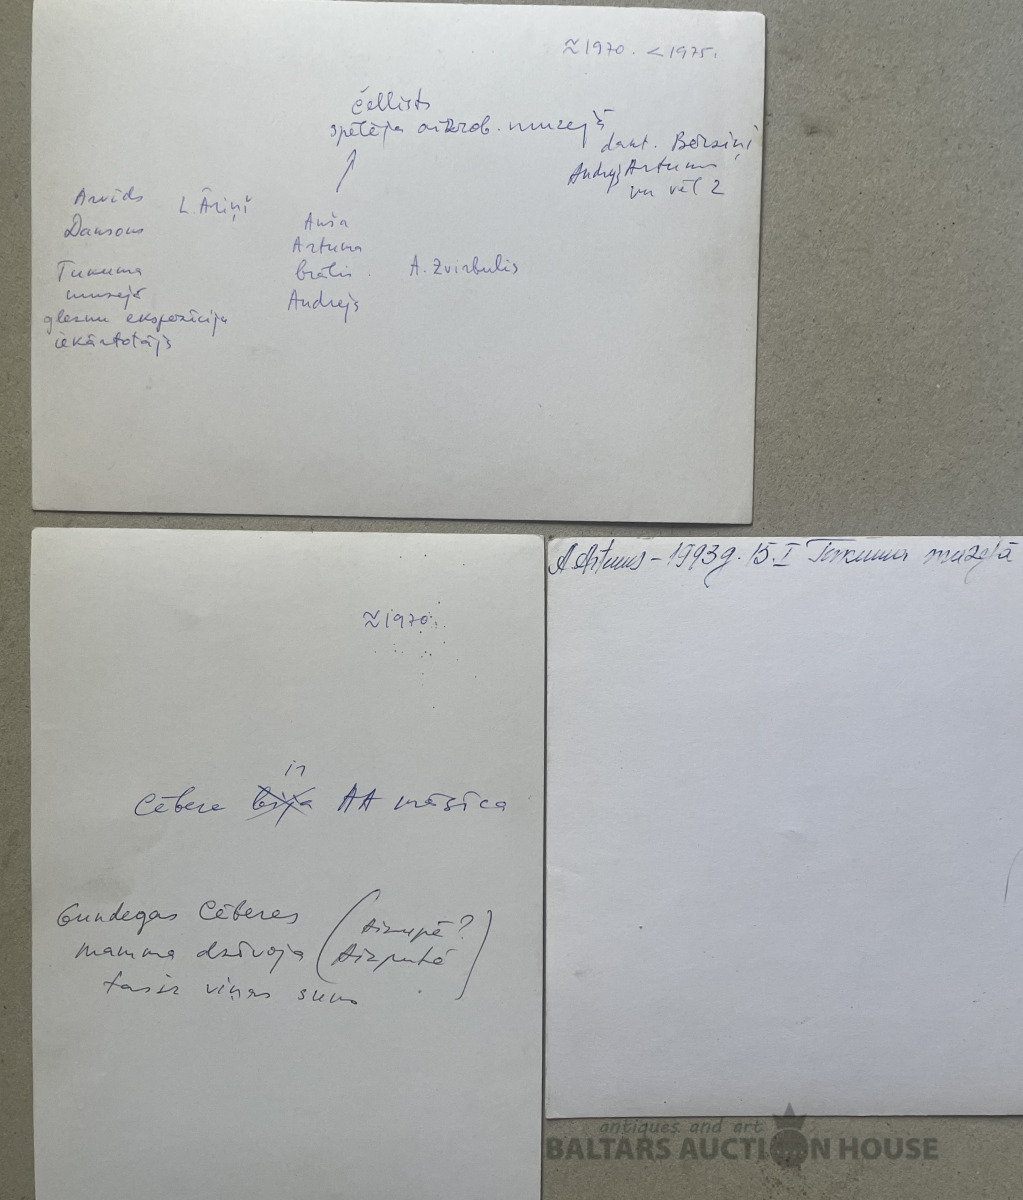 ≈1970. <1975.
čellists
spēlēja mikrob. muzejā
dakt. Bērziņi
Andrejs Artums
un vēl 2
Arvīds
Dansons
L. Āriņš
Tukuma
muzejā
gleznu ekspozīciju
iekārtotājs
Anša
Artuma
brālis
Andrejs
A. Zvirbulis
≈1970.
ir
Cēbere bija AA māsīca
Gundegas Cēberes
mamma dzīvoja
tas ir viņas suns
(Aizupē?
Aizputē)
A Artums - 1993g. 15.I Tukuma muzejā
antiques and art
BALTARS AUCTION HOUSE